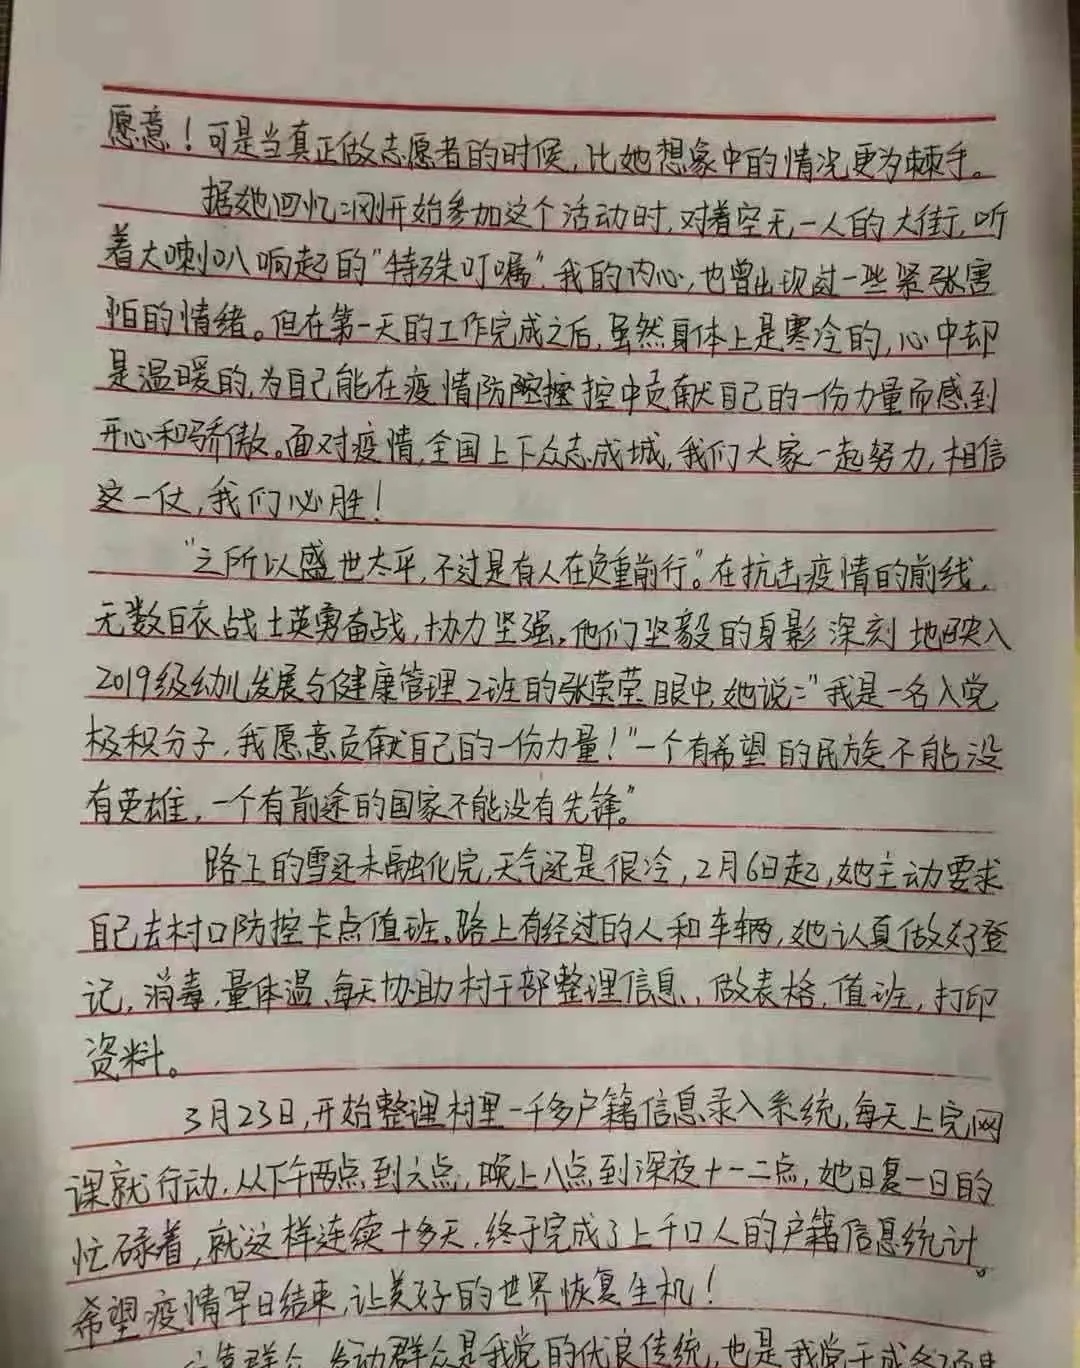 愿意！可是当真正做志愿者的时候，比她想象中的情况更为棘手。
据她回忆：刚开始参加这个活动时，对着空无一人的大街，听
着大喇叭响起的“特殊叮嘱”，我的内心，也曾出现过一些紧张害
怕的情绪。但在第一天的工作完成之后，虽然身体上是寒冷的，心中却
是温暖的，为自己能在疫情防控中贡献自己的一份力量而感到
开心和骄傲。面对疫情，全国上下众志成城，我们大家一起努力，相信
这一仗，我们必胜！
“之所以盛世太平，不过是有人在负重前行”。在抗击疫情的前线，
无数白衣战士英勇奋战，协力坚强，他们坚毅的身影深刻地映入
2019级幼儿发展与健康管理2班的张莹莹眼中，她说：“我是一名入党
极积分子，我愿意贡献自己的一份力量！”一个有希望的民族不能没
有英雄，一个有前途的国家不能没有先锋”
路上的雪还未融化完，天气还是很冷，2月6日起，她主动要求
自己去村口防控卡点值班。路上有经过的人和车辆，她认真做好登
记，消毒，量体温、每天协助村干部整理信息、做表格，值班，打印
资料。
3月23日，开始整理村里一千多户籍信息录入系统，每天上完网
课就行动，从下午两点到六点，晚上八点到深夜十一二点，她日复一日的
忙碌着，就这样连续十多天，终于完成了上千口人的户籍信息统计。
希望疫情早日结束，让美好的世界恢复生机！
群众、发动群众是我党的优良传统，也是我党